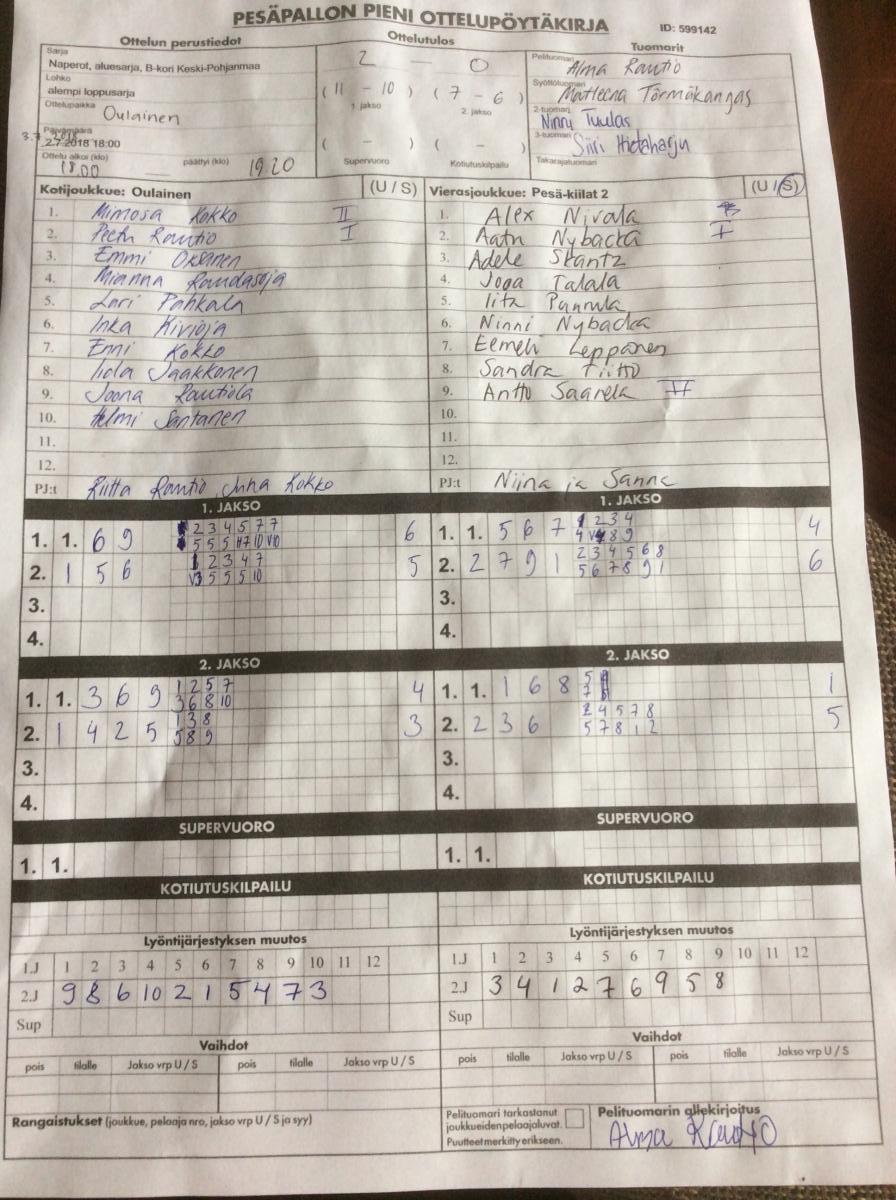 PESÄPALLON PIENI OTTELUPÖYTÄKIRJA
ID: 599142
Ottelun perustiedot
Ottelutulos
Tuomarit
Sarja
Naperot, aluesarja, B-kori Keski-Pohjanmaa
2 — 0
Pelituomari
Alma Rautio
Lohko
alempi loppusarja
( 11 - 10 ) ( 7 - 6 )
1. jakso 2. jakso
Syöttötuomari
Matleena Törmäkangas
Ottelupaikka
Oulainen
2-tuomari
Ninny Tuulas
Päivämäärä
2.7.2018 18:00
( - ) ( - )
Supervuoro Kotiutuskilpailu
3-tuomari
Siiri Hietaharju
Ottelu alkoi (klo) 18.00 päättyi (klo) 19.20
Takarajatuomari
Kotijoukkue: Oulainen (U / S)
1. Mimosa Kokko II
2. Peetu Rautio I
3. Emmi Oksanen
4. Mianna Raudasoja
5. Lari Pahkala
6. Inka Kivioja
7. Enni Kokko
8. Iida Jaakkonen
9. Joona Rautiola
10. Helmi Santanen
11.
12.
PJ:t Riitta Rautio, Juha Kokko
Vierasjoukkue: Pesä-kiilat 2 (U / S)
1. Alex Nivala
2. Aatu Nybacka I
3. Adele Skantz
4. Jooa Talala
5. Iita Pannula
6. Ninni Nybacka
7. Eemeli Leppänen
8. Sandra Tiitto
9. Antto Saarela II
10.
11.
12.
PJ:t Niina ja Sanna
1. JAKSO
1. 1. 6 9 2 3 4 5 7 7 6
5 5 5 H7 10 V10
2. 1 5 6 1 2 3 4 7 5
V3 5 5 5 10
3.
4.
1. JAKSO
1. 1. 5 6 7 1 2 3 4 4
4 8 9
2. 2 7 9 1 2 3 4 5 6 8 6
5 6 7 8 9 1
3.
4.
2. JAKSO
1. 1. 3 6 9 1 2 5 7 4
3 6 8 10
2. 1 4 2 5 1 3 8 3
5 8 9
3.
4.
2. JAKSO
1. 1. 1 6 8 5 1
7
2. 2 3 6 2 4 5 7 8 5
5 7 8 1 2
3.
4.
SUPERVUORO
1. 1.
SUPERVUORO
1. 1.
KOTIUTUSKILPAILU
KOTIUTUSKILPAILU
Lyöntijärjestyksen muutos
1.J 1 2 3 4 5 6 7 8 9 10 11 12
2.J 9 8 6 10 2 1 5 4 7 3
Sup
Lyöntijärjestyksen muutos
1.J 1 2 3 4 5 6 7 8 9 10 11 12
2.J 3 4 1 2 7 6 9 5 8
Sup
Vaihdot
pois tilalle Jakso vrp U / S pois tilalle Jakso vrp U / S
Vaihdot
pois tilalle Jakso vrp U / S pois tilalle Jakso vrp U / S
Rangaistukset (joukkue, pelaaja nro, jakso vrp U / S ja syy)
Pelituomari tarkastanut
joukkueiden pelaajaluvat.
Puutteet merkitty erikseen.
Pelituomarin allekirjoitus
Alma Rautio